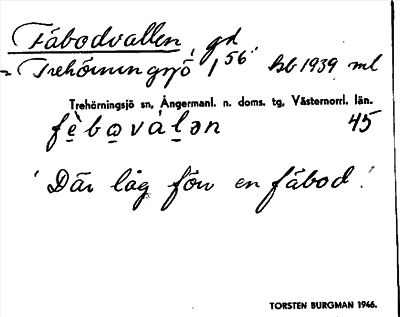 Fäbodvallen, gd
= Trehörningsjö 1⁵⁶ hb 1939 ml
Trehörningsjö sn, Ångermanl. n. doms. tg, Västernorrl. län.
fè̱bo̱vàḻən 45
'Där låg förr en fäbod.'
TORSTEN BURGMAN 1946.